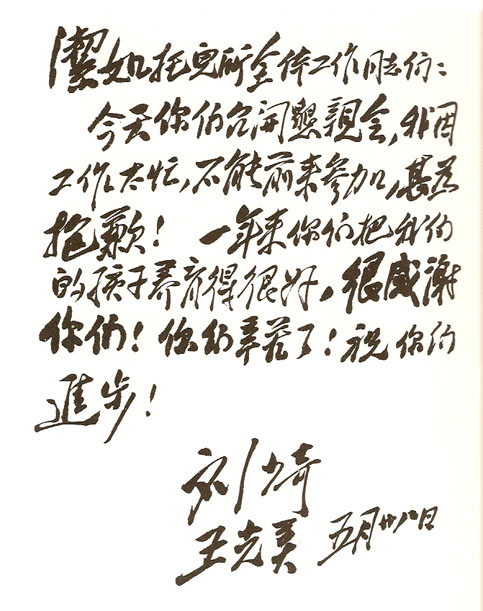 潔如托兒所全体工作同志们：
今天你们召開懇親会，我因
工作太忙，不能前来参加，甚为
抱歉！一年来你们把我们
的孩子养育得很好，很感谢
你们！你们辛苦了！祝你们
進步！
刘少奇
王光美 五月廿八日